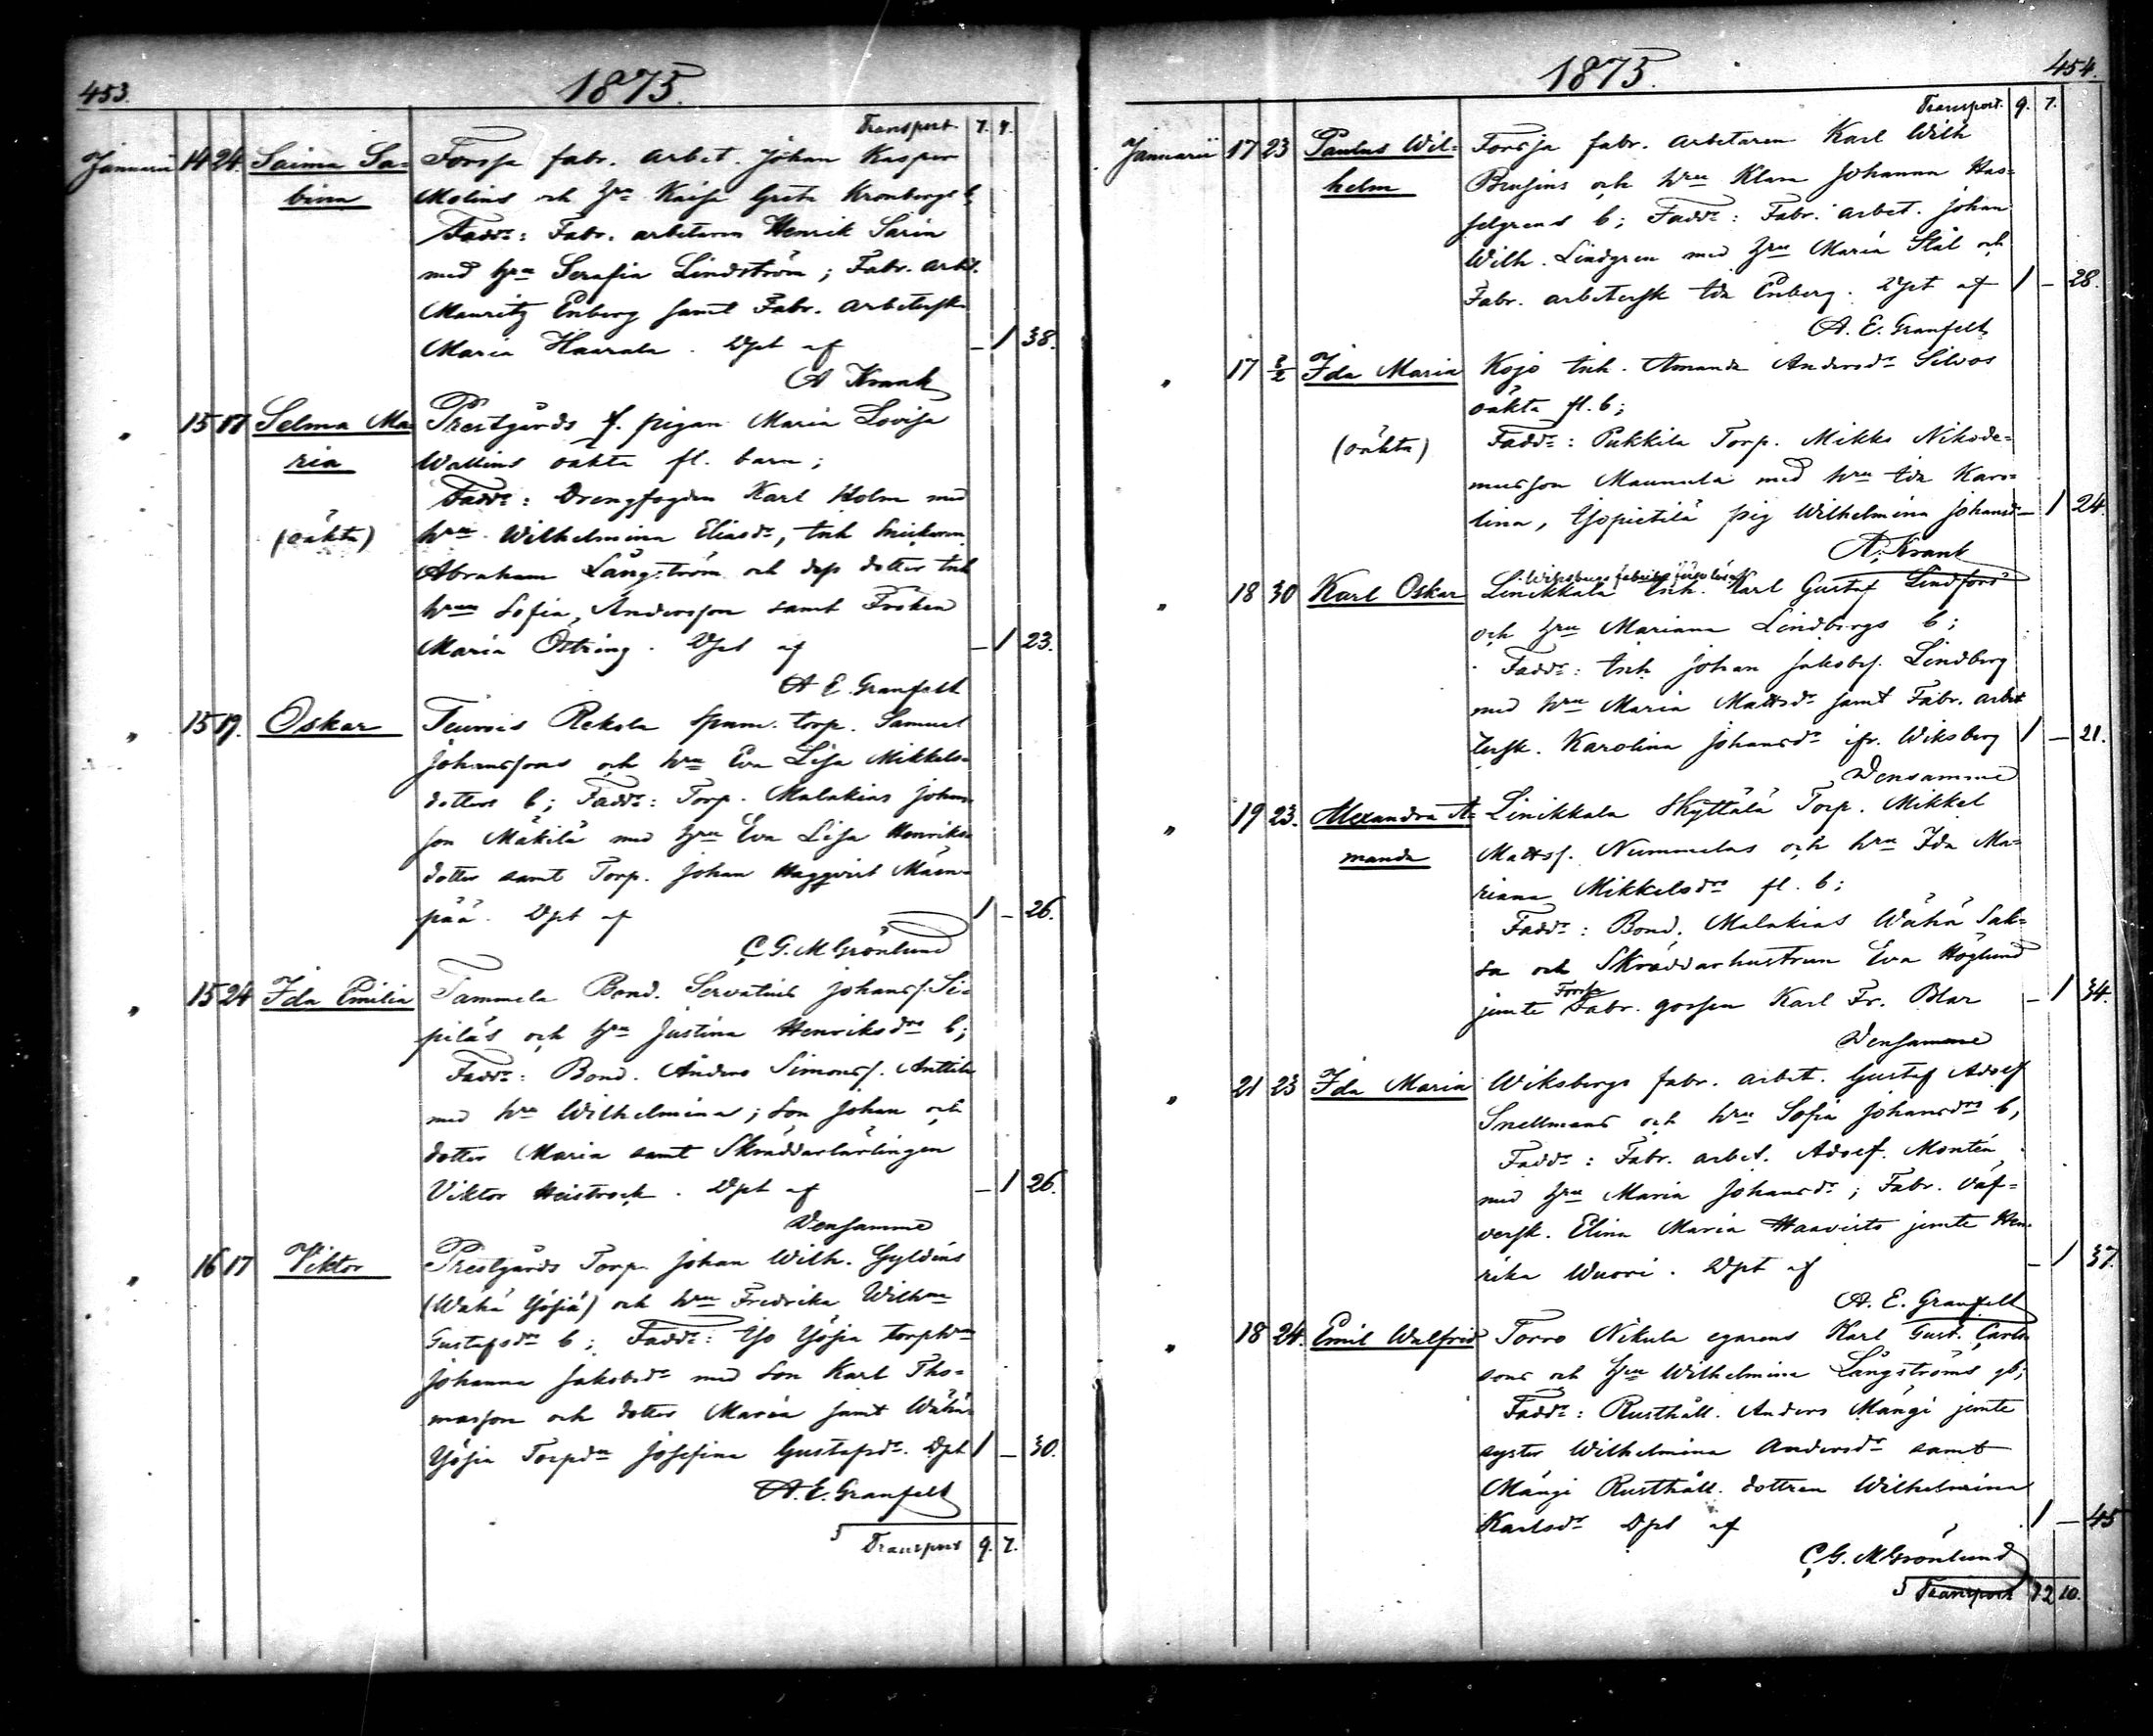 453.
1875.
Transport 7. 7.
Januarii 14 24. Saima Sa= Forssa fabr. arbet. Johan Kasper
bina Molins och hu Kaisa Greta Kronbergs b;
Fadd: Fabr. arbetaren Henrik Sarin
med hu Serafia Lindström; Fabr. arbet.
Mauritz Enberg samt Fabr. arbetersk.
Maria Haarala. Dpt af – 1 38.
A Krank
" 15 17 Selma Ma= Prestgårds f. pigan Maria Lovisa
ria Wallins oäkta fl. barn;
Fadd: Drengfogden Karl Holm med
(oäkta) hru Wilhelmina Eliasdr, Inh Snickaren
Abraham Långström och dess dotter Inh
hrun Sofia Andersson samt Fröken
Maria Östring. Dpt af – 1 23.
A E. Granfelt
" 15 19. Oskar Teurois Rekola spnm. torp. Samuel
Johanssons och hru Eva Lisa Mikkels=
dotters b; Fadd: Torp. Malakias Johans=
son Mäkilä med hru Eva Lisa Henriks=
dotter samt Torp. Johan Haggqvist Mäen=
pää. Dpt af 1 – 26.
C. G. M Grönlund
" 15 24 Ida Emilia Tammela Bond. Servatius Johanss. Se=
piläs och hru Justina Henriksdrs b;
Fadd: Bond. Anders Simonss. Anttila
med hru Wilhelmina; Son Johan och
dotter Maria samt Skräddarlärlingen
Viktor Heistrock. Dpt af – 1 26.
Densamme
" 16 17 Viktor Prestgårds Torp. Johan Wilh. Gyldéns
(Wähä Yösiä) och hru Fredrika Wilhna
Gustafsdrs b; Fadd: Iso Yösia torphru
Johanna Jakobsdr med Son Karl Tho=
masson och dotter Maria samt Wähä=
Yösia Torpdr Josefina Gustafsdr. Dpt 1 – 30.
A. E. Granfelt
5 Transport 9. 7.
454.
1875.
Transport. 9. 7.
Januarii 17 23 Paulus Wil= Forssa fabr. arbetaren Karl Wilh
helm Brusins och hru Klara Johanna Has=
selgrens b; Fadd: Fabr. arbet. Johan
Wilh. Lindgren med hru Maria Stål och
Fabr. arbetersk Ida Enberg. Dpt af 1 – 28.
A. E. Granfelt
" 17 8/2 Ida Maria Kojo Inh. Amanda Andersdr Silvos
oäkta fl. b;
(oäkta) Fadd: Pukkila Torp. Mikko Nikode=
musson Maunula med hru Ida Karo=
lina, Isopietilä pig Wilhelmina Johansdr – 1 24.
A. Krank
Wiksbergs fabriks
" 18 30 Karl Oskar Linikkala Inh. Karl Gustaf Lindfors
och hru Mariana Lindbergs b;
Fadd: Inh Johan Jakobss. Lindberg
med hru Maria Mattsdr samt Fabr. arbet
tersk. Karolina Johansdr ifr. Wiksberg 1 – 21.
Densamme
" 19 23. Alexandra A= Linikkala Skyttälä Torp. Mikkel
manda Mattss. Nummelas och hru Ida Ma=
riana Mikkelsdrs fl. b;
Fadd: Bond. Malakias Wähä Sak=
sa och Skräddarhustrun Eva Höglund
Forssa
jemte Fabr. gossen Karl Fr. Blar – 1 34.
Densamme
" 21 23 Ida Maria Wiksbergs fabr. arbet. Gustaf Adolf
Snellmans och hru Sofia Johansdrs b,
Fadd: Fabr. arbet. Adolf. Montén
med hru Maria Johansdr; Fabr. väf=
versk. Elina Maria Haavisto jemte Hen=
rika Wuori. Dpt af – 1 37.
A. E. Granfelt
" 18 24. Emil Walfrid Torro Nikula egarens Karl Gust. Carls
sons och hru Wilhelmina Långströms gb;
Fadd: Rusthåll. Anders Mängi jemte
syster Wilhelmina Andersdr samt
Mängi Rusthåll. dottren Wilhelmina
Karlsdr Dpt af 1 – 45
C. G. M Grönlund
5 Transport 12 10.